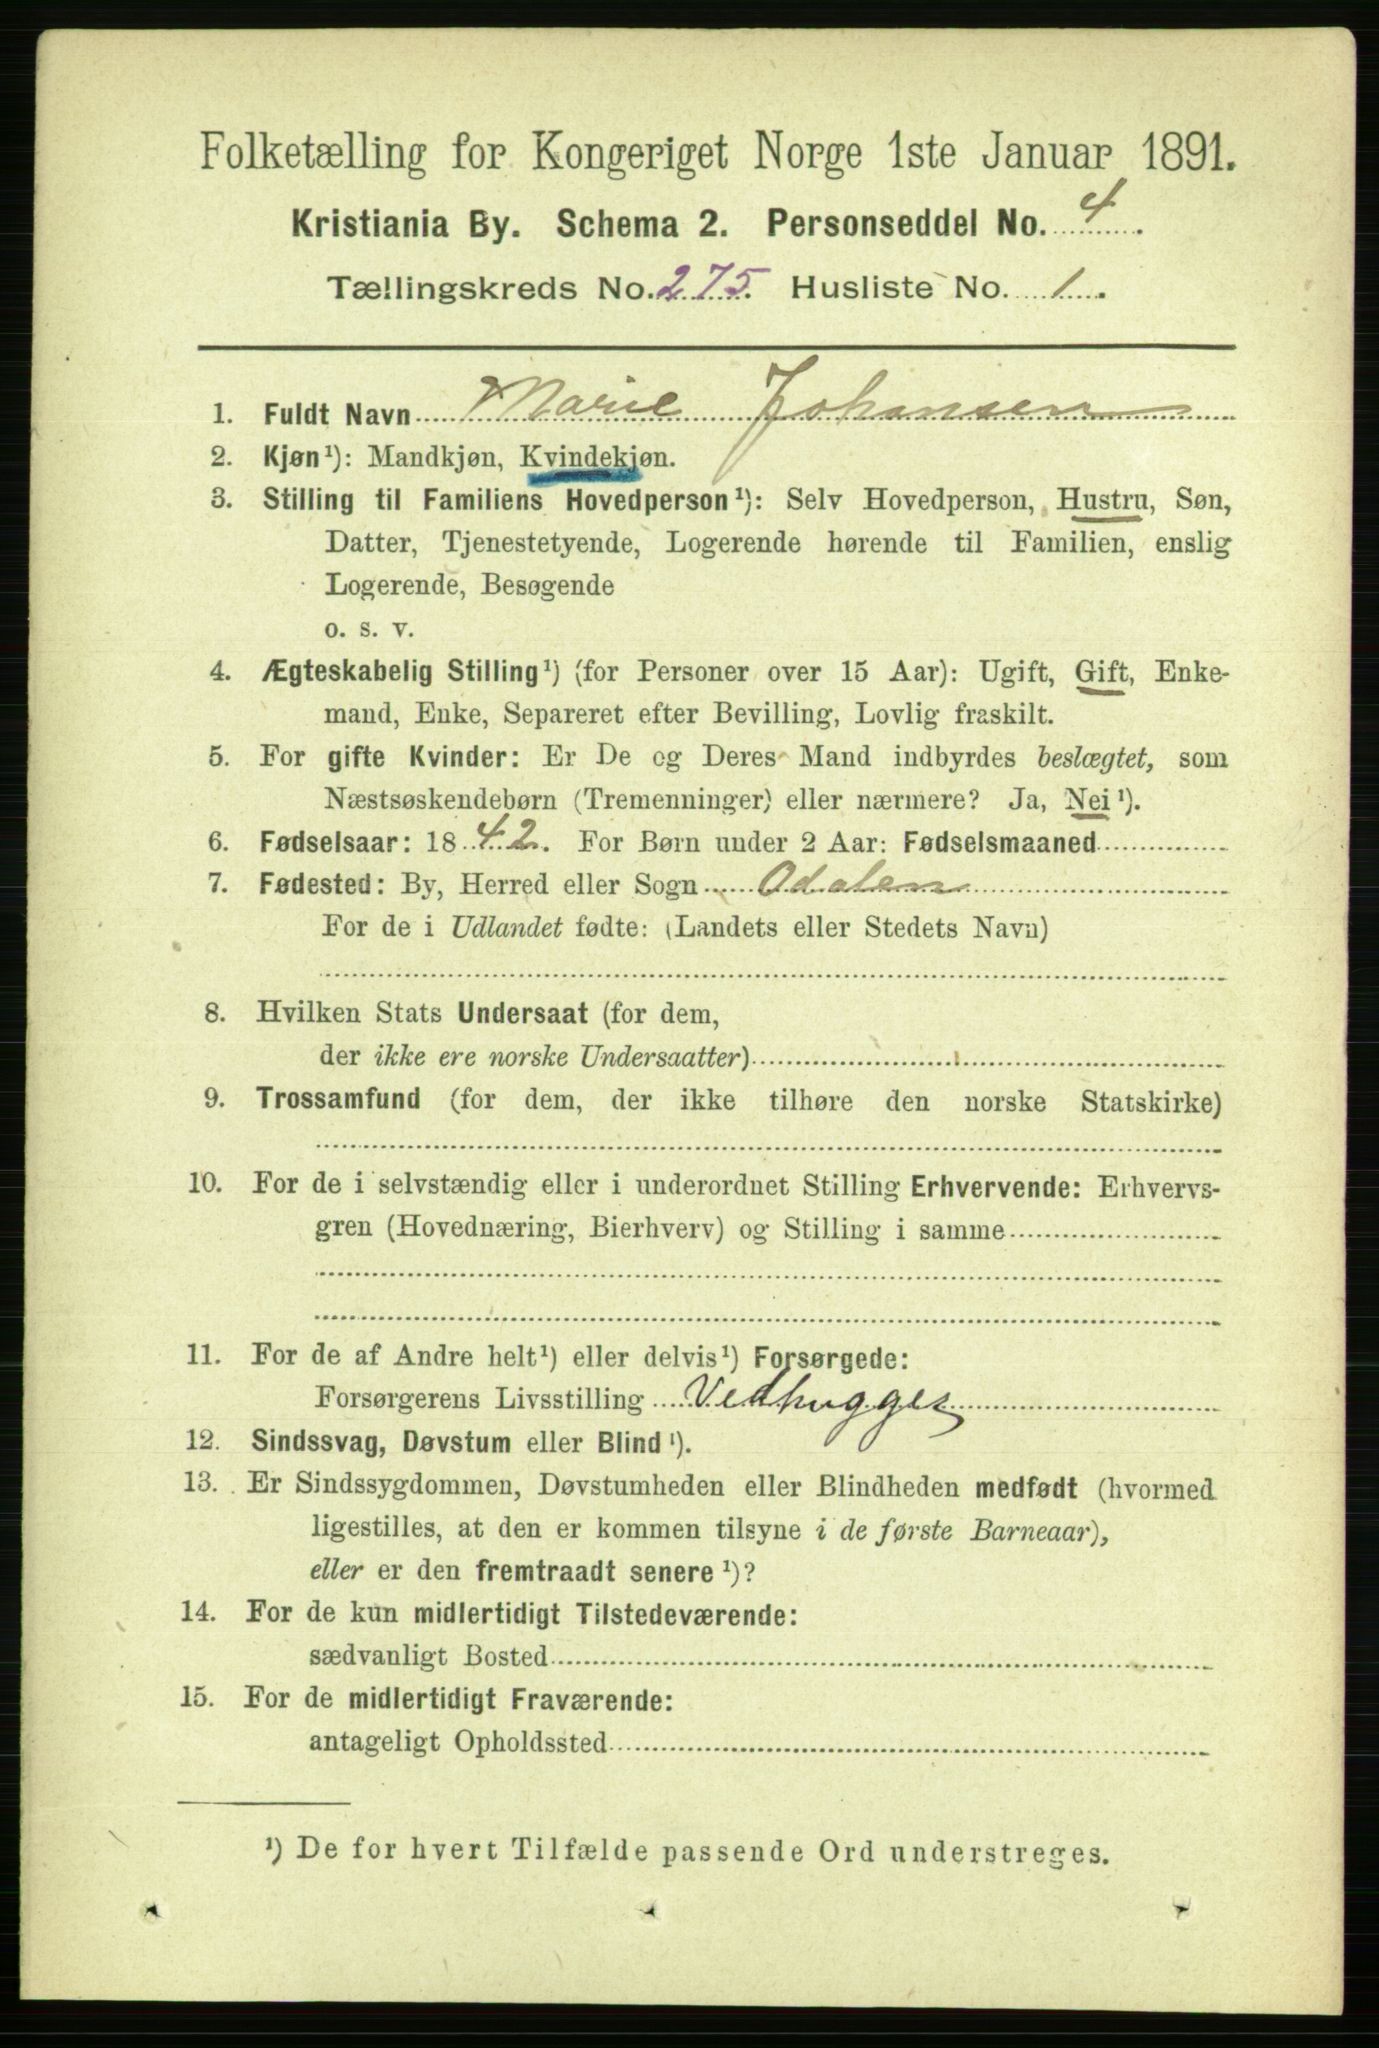 Folketælling for Kongeriget Norge 1ste Januar 1891.
Kristiania By. Schema 2. Personseddel No. 4.
Tællingskreds No. 275. Husliste No. 1.
1. Fuldt Navn Marie Johansen
2. Kjøn¹): Mandkjøn, Kvindekjøn.
3. Stilling til Familiens Hovedperson¹): Selv Hovedperson, Hustru, Søn,
Datter, Tjenestetyende, Logerende hørende til Familien, enslig
Logerende, Besøgende
o. s. v.
4. Ægteskabelig Stilling¹) (for Personer over 15 Aar): Ugift, Gift, Enke-
mand, Enke, Separeret efter Bevilling, Lovlig fraskilt.
5. For gifte Kvinder: Er De og Deres Mand indbyrdes beslægtet, som
Næstsøskendebørn (Tremenninger) eller nærmere? Ja, Nei¹).
6. Fødselsaar: 1842. For Børn under 2 Aar: Fødselsmaaned
7. Fødested: By, Herred eller Sogn Odalen
For de i Udlandet fødte: (Landets eller Stedets Navn)
8. Hvilken Stats Undersaat (for dem,
der ikke ere norske Undersaatter)
9. Trossamfund (for dem, der ikke tilhøre den norske Statskirke)
10. For de i selvstændig eller i underordnet Stilling Erhvervende: Erhvervs-
gren (Hovednæring, Bierhverv) og Stilling i samme
11. For de af Andre helt¹) eller delvis¹) Forsørgede:
Forsørgerens Livsstilling Vedhugger
12. Sindssvag, Døvstum eller Blind¹).
13. Er Sindssygdommen, Døvstumheden eller Blindheden medfødt (hvormed
ligestilles, at den er kommen tilsyne i de første Barneaar),
eller er den fremtraadt senere¹)?
14. For de kun midlertidigt Tilstedeværende:
sædvanligt Bosted
15. For de midlertidigt Fraværende:
antageligt Opholdssted
¹) De for hvert Tilfælde passende Ord understreges.